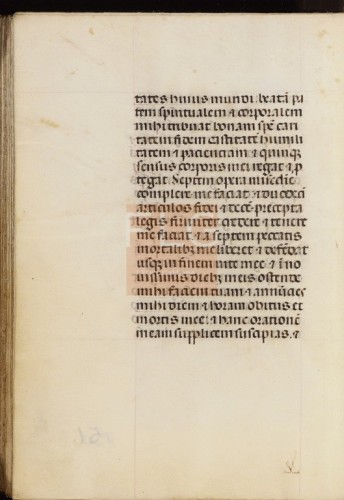 tates huius mundi beatã pa
tem spiritualem & corporalem
mihi tribuat bonam spẽ cari
tatem fidem castitatẽ humili
tatem & pacienciam & quinqꝫ
sensus corporis mei regat & p
tegat Septem opera mĩẽ
complere me faciat & duodecĩ
articulos fidei & decẽ precepta
legis firmiter credere & tenere
me faciat & a septem peccatis
mortalibꝫ me liberet & defẽdat
usqꝫ in finem vite mee & ĩ no
uissimis diebꝫ meis ostende
mihi faciem tuam & annũcies
mihi diem & horam obitus et
mortis mee & hanc orationẽ
meam supplicem suscipias &